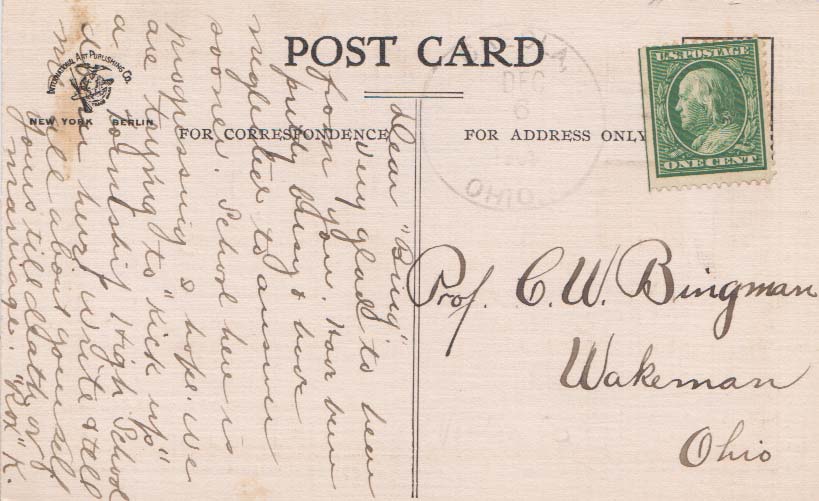 POST CARD
INTERNATIONAL ART PUBLISHING CO.
NEW YORK BERLIN
FOR CORRESPONDENCE
FOR ADDRESS ONLY
U.S. POSTAGE
ONE CENT
DEC
8
OHIO
Dear "Bing"
Very glad to been
from you. Have been
pretty busy & have
neglected to answer
sooner. School here is
progressing I hope. We
are trying to "kick up"
a township High School
here. Write & tell
me all about yourself
Yours till death or
marriage. "Rox" K.
Prof. C. W. Bingman
Wakeman
Ohio